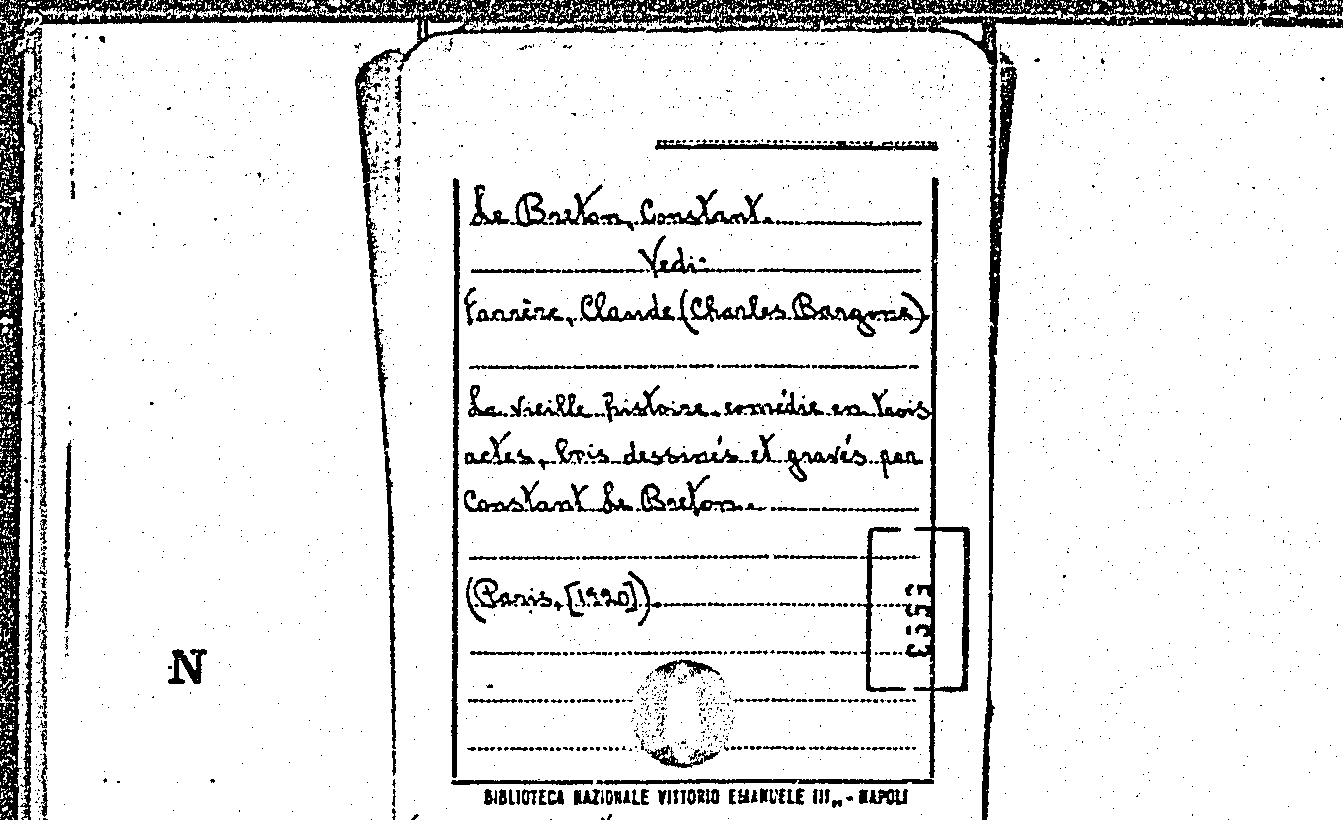 Le Breton, Constant.
Vedi:
Farrère, Claude (Charles Bargone)
La vieille histoire, comédie en trois
actes, bois dessinés et gravés par
Constant Le Breton.
(Paris, [1920]).
N
BIBLIOTECA NAZIONALE VITTORIO EMANUELE III,, - NAPOLI